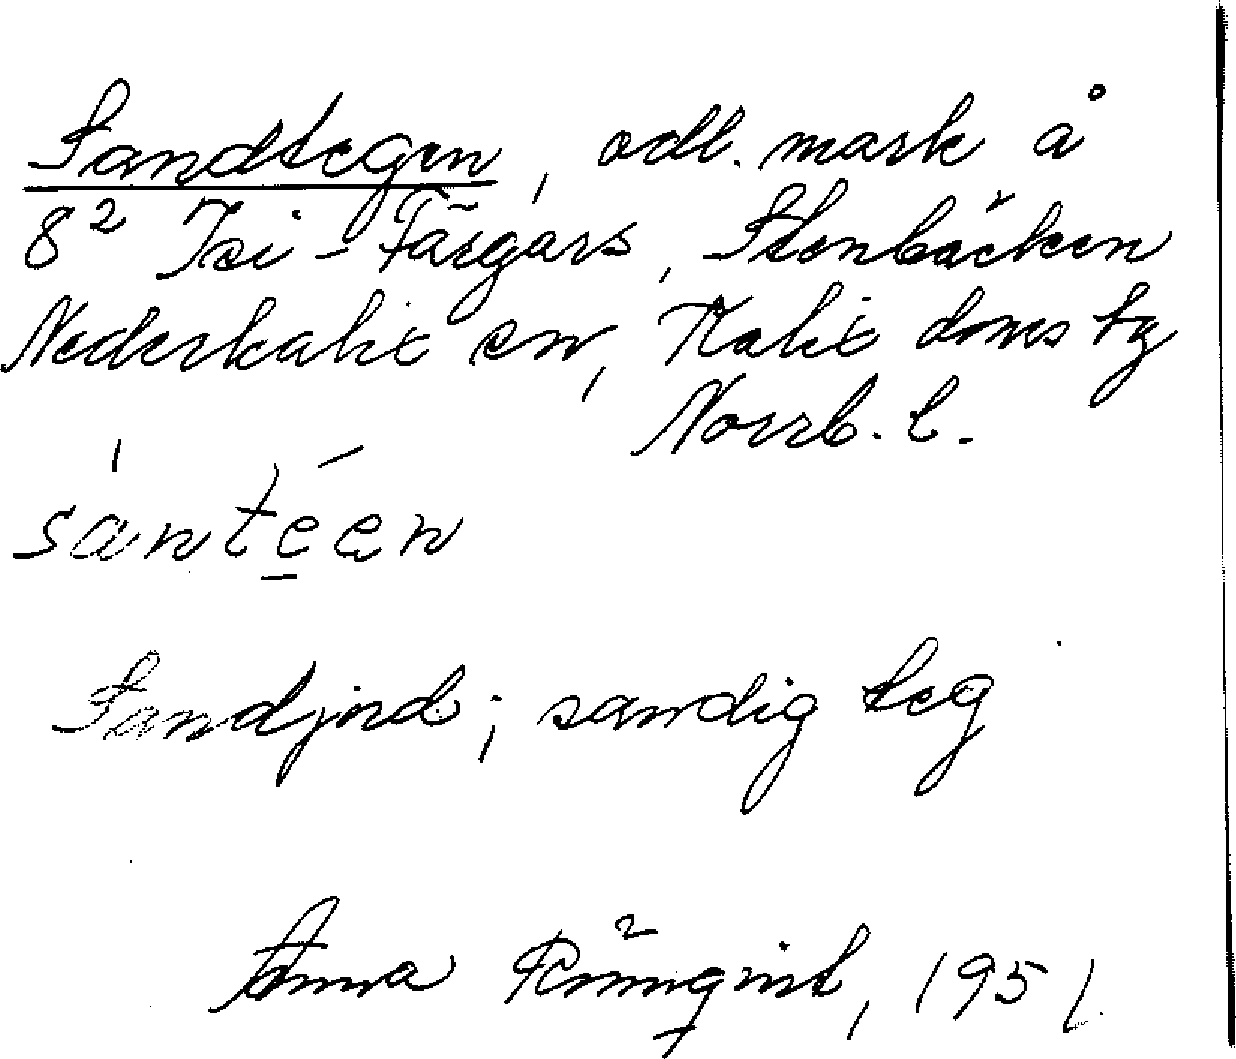 Sandtegen, odl. mark å
8² Isi-Färgars, Stenbäcken
Nederkalix sn, Kalix doms tg
Norrb. l.
sànte̱én
Sandjord; sandig teg
Anna Rönnqvist, 1951.